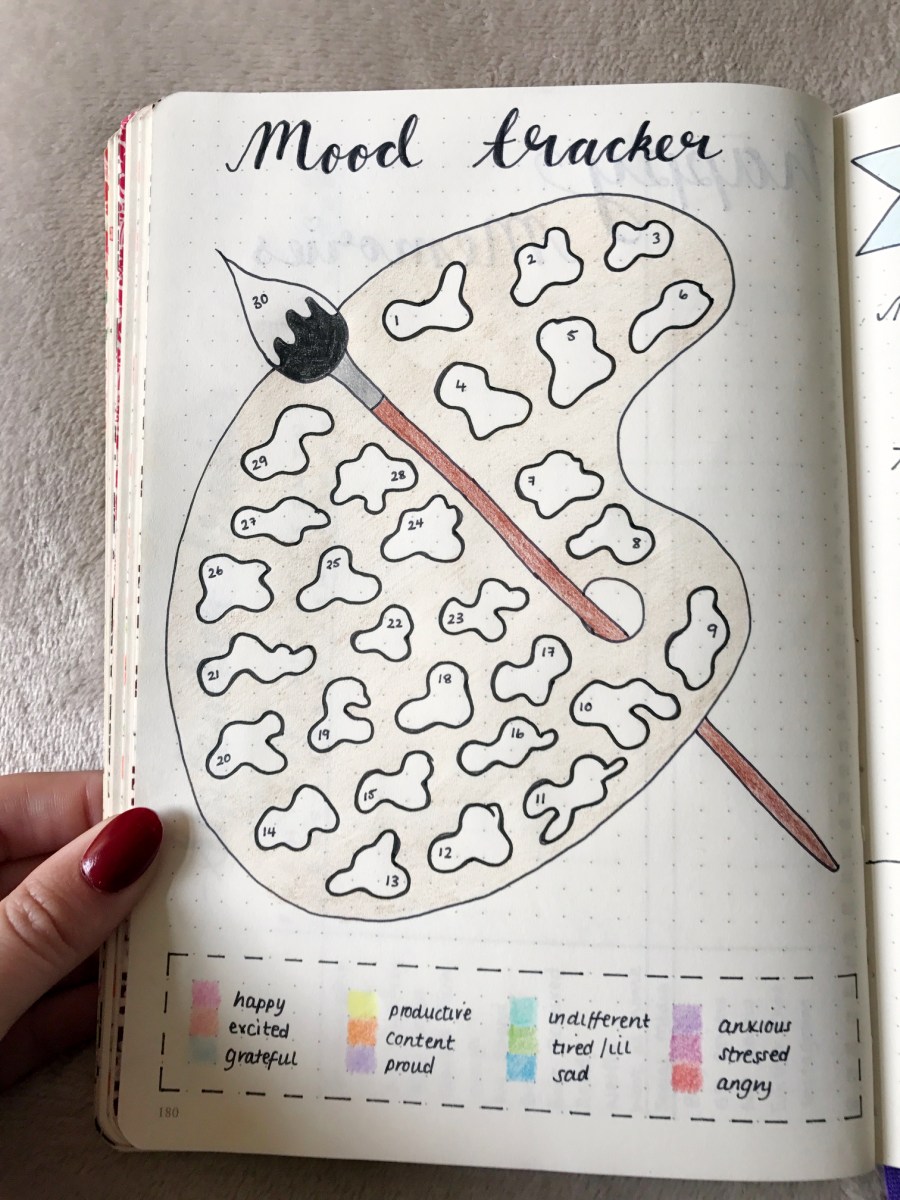 Mood tracker
1
2
3
4
5
6
7
8
9
10
11
12
13
14
15
16
17
18
19
20
21
22
23
24
25
26
27
28
29
30
happy
excited
grateful
productive
content
proud
indifferent
tired/ill
sad
anxious
stressed
angry
180